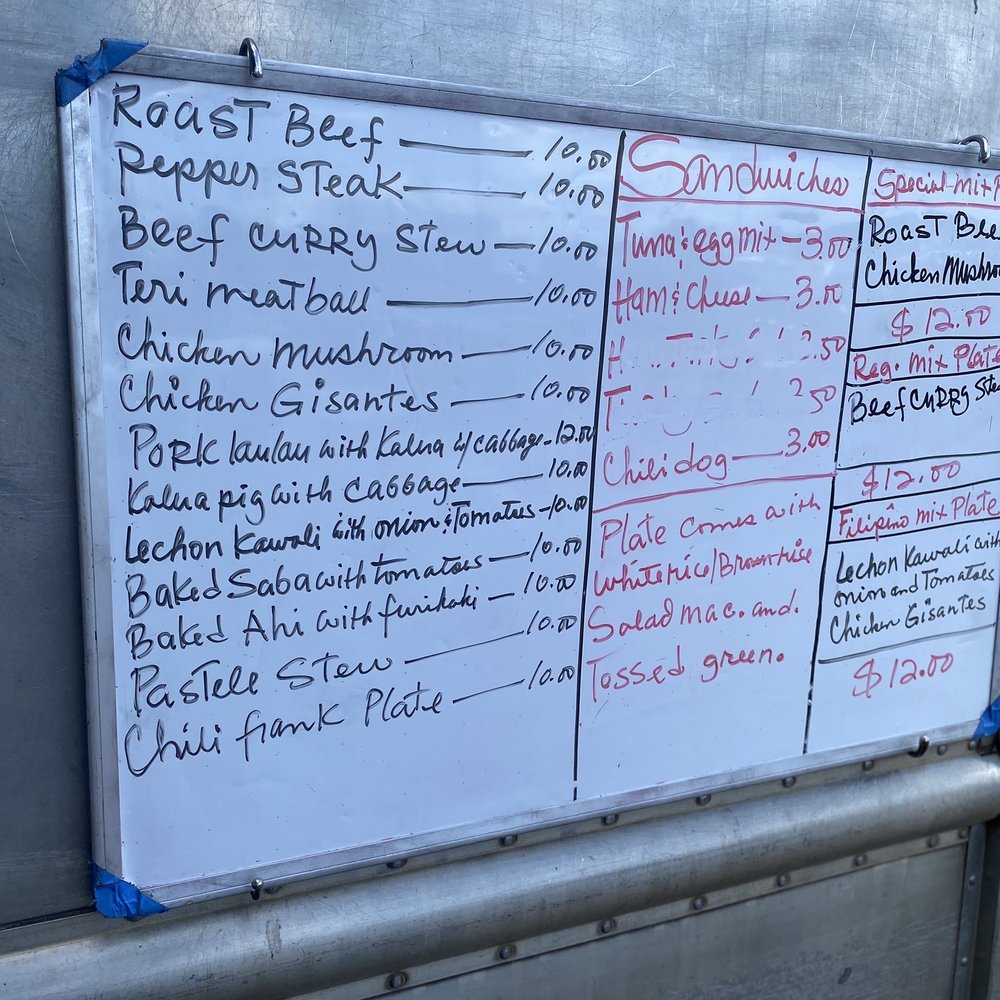 Roast Beef — 10.00
Pepper Steak — 10.00
Beef Curry Stew — 10.00
Teri meatball — 10.00
Chicken mushroom — 10.00
Chicken Gisantes — 10.00
Pork laulau with Kalua w/ cabbage - 12.00
Kalua pig with cabbage — 10.00
Lechon Kawali with onion & Tomatoes - 10.00
Baked Saba with tomatoes — 10.00
Baked Ahi with furikaki — 10.00
Pastele Stew — 10.00
Chili frank Plate — 10.00
Sandwiches
Tuna & egg mix — 3.00
Ham & Cheese — 3.00
2.50
2.50
Chili dog — 3.00
Plate comes with
white rice/Brown rice
Salad mac. and.
Tossed green.
Special mix P
Roast Bee
Chicken Mushroo
$12.00
Reg. mix Plate
Beef Curry Ste
$12.00
Filipino mix Plate
Lechon Kawali with
onion and Tomatoes
Chicken Gisantes
$12.00